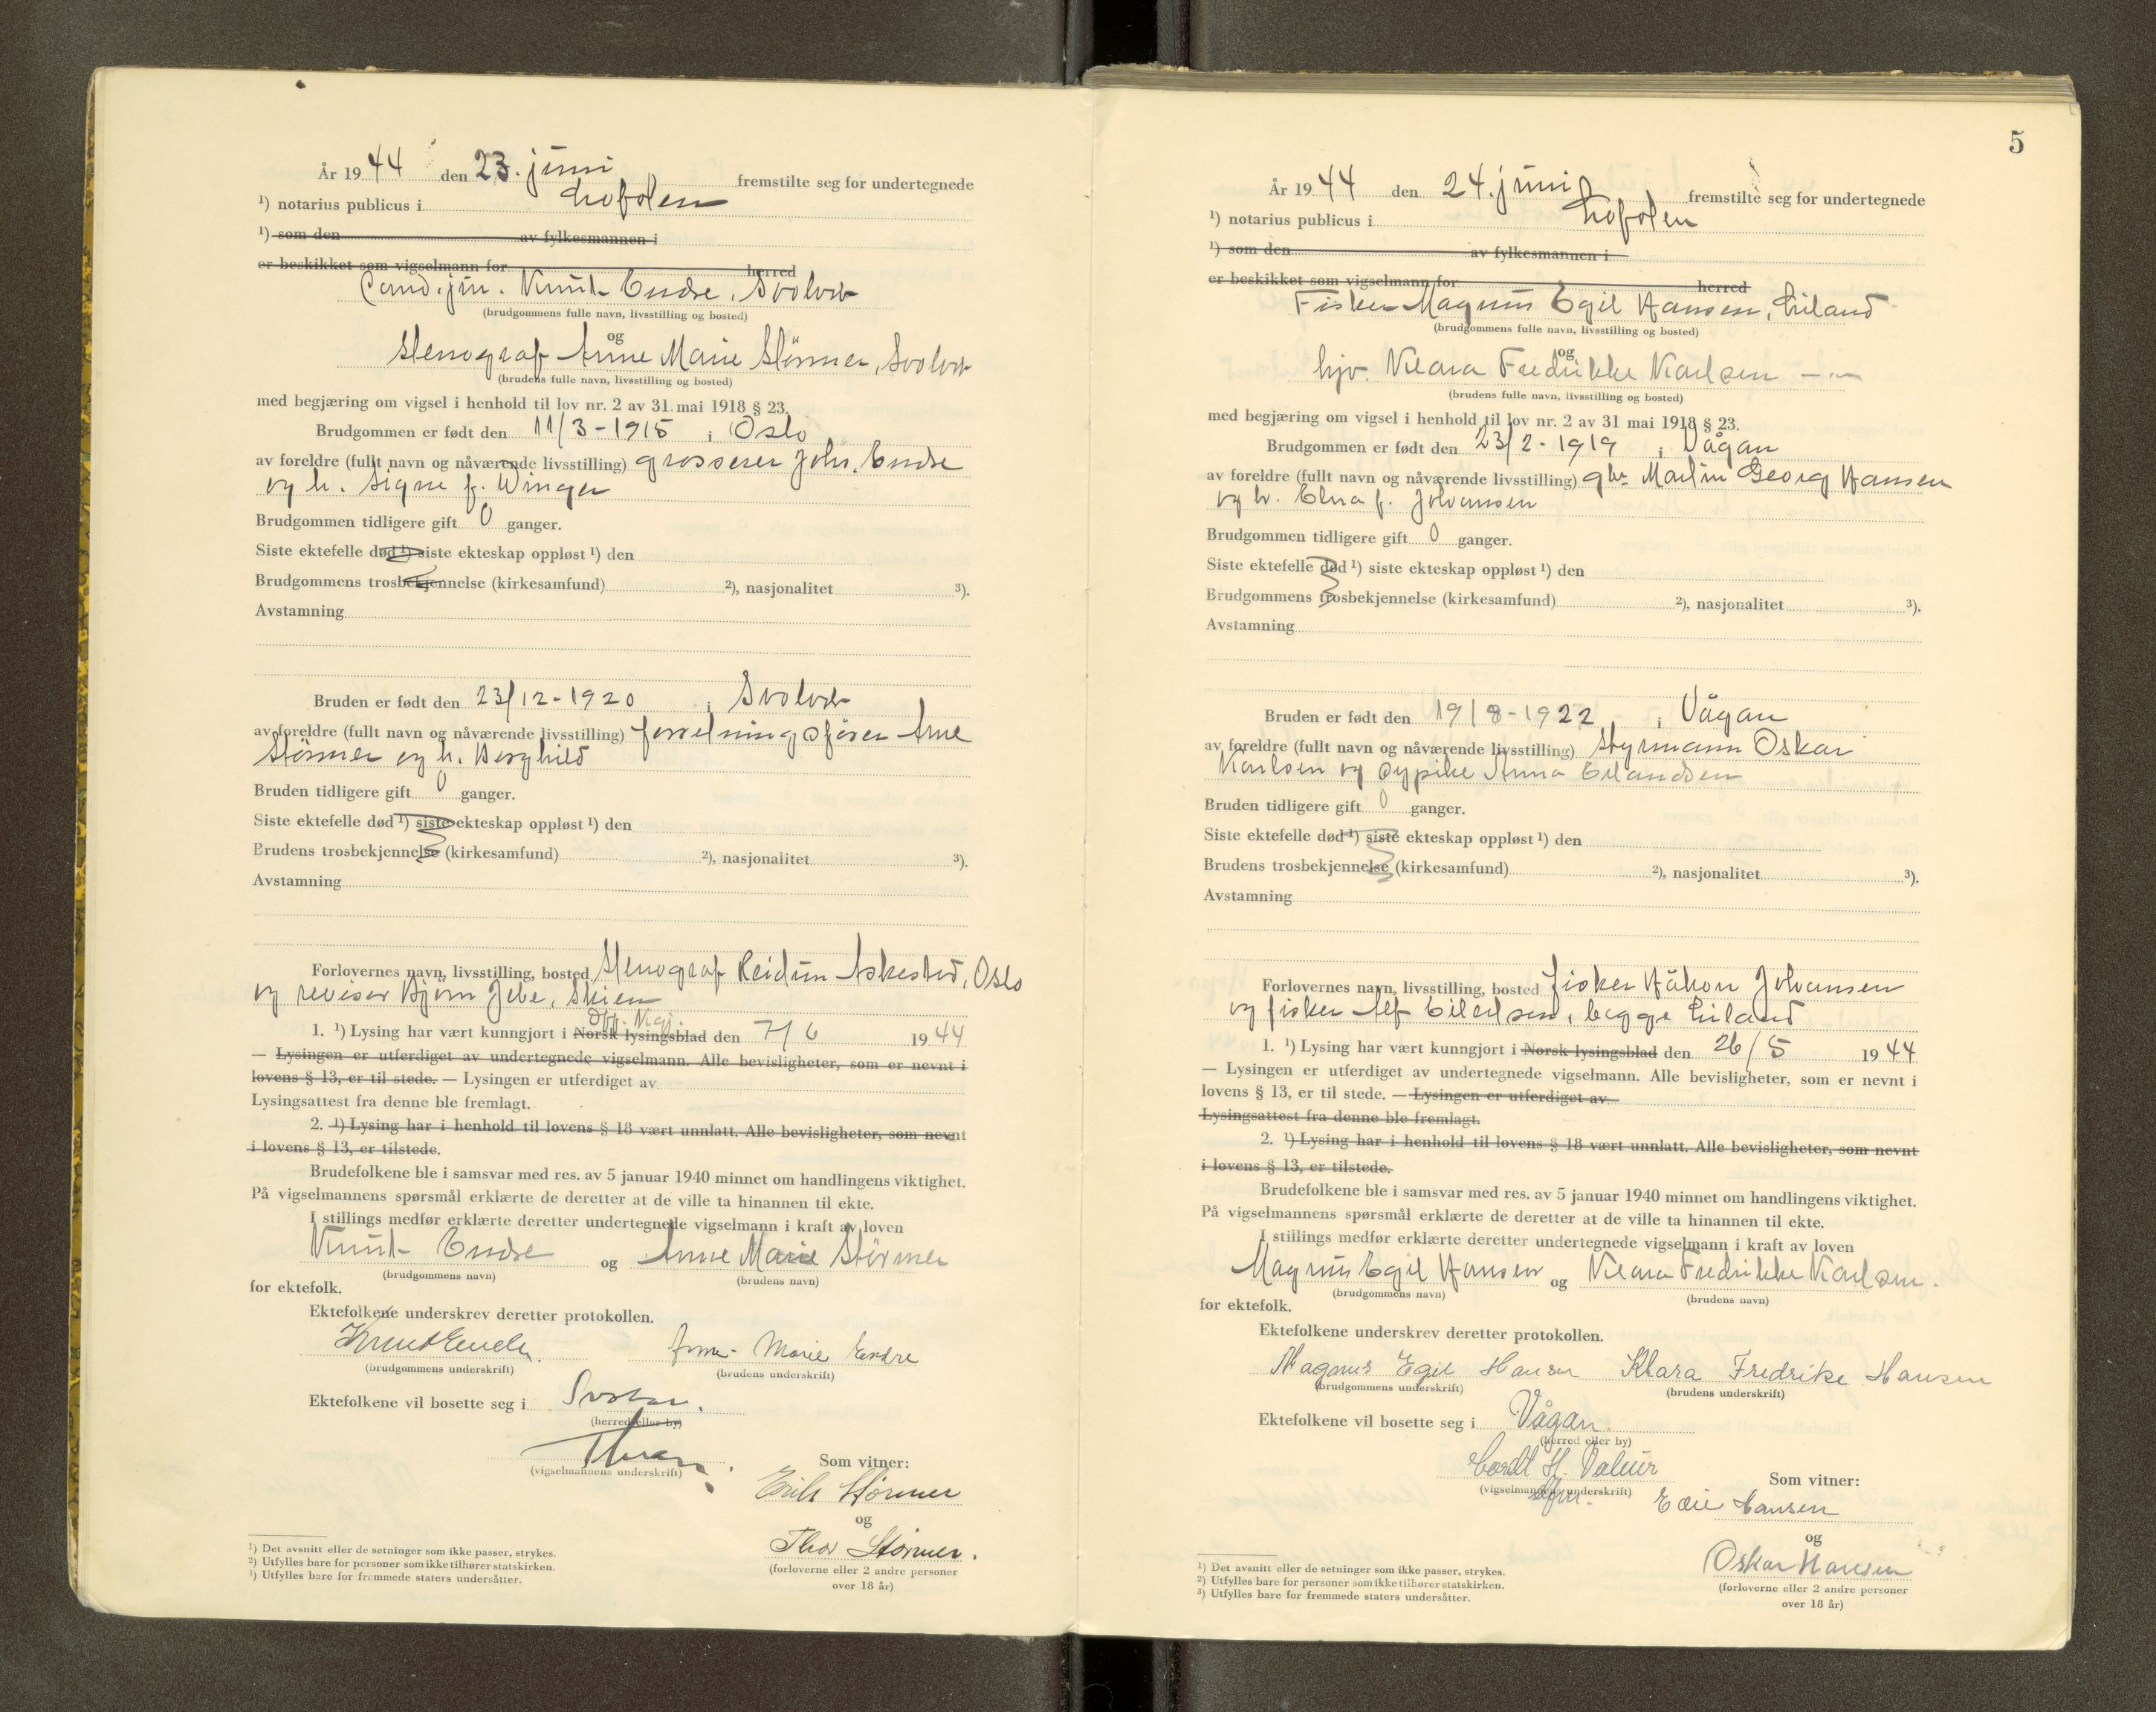 År 1944 den 23. juni fremstilte seg for undertegnede
¹) notarius publicus i Lofoten
¹) som den av fylkesmannen i
er beskikket som vigselmann for herred
Cand. jur. Knut Endre, Svolvær
(brudgommens fulle navn, livsstilling og bosted)
og
Stenograf Anne Marie Störmer, Svolvær
(brudens fulle navn, livsstilling og bosted)
med begjæring om vigsel i henhold til lov nr. 2 av 31. mai 1918 § 23.
Brudgommen er født den 11/3-1915 i Oslo
av foreldre (fullt navn og nåværende livsstilling) grosserer Johs. Endre
og h. Signe f. Winger
Brudgommen tidligere gift 0 ganger.
Siste ektefelle død ¹) siste ekteskap oppløst ¹) den
Brudgommens trosbekjennelse (kirkesamfund) ²), nasjonalitet ³).
Avstamning
Bruden er født den 23/12-1920 i Svolvær
av foreldre (fullt navn og nåværende livsstilling) forretningsfører Arne
Störmer og h. Borghild
Bruden tidligere gift 0 ganger.
Siste ektefelle død ¹) siste ekteskap oppløst ¹) den
Brudens trosbekjennelse (kirkesamfund) ²), nasjonalitet ³).
Avstamning
Forlovernes navn, livsstilling, bosted Stenograf Reidun Askestad, Oslo
og revisor Bjørn Jebe, Skien
Off. Kgj.
1. ¹) Lysing har vært kunngjort i Norsk lysingsblad den 7/6 1944
— Lysingen er utferdiget av undertegnede vigselmann. Alle bevisligheter, som er nevnt i
lovens § 13, er til stede. — Lysingen er utferdiget av
Lysingsattest fra denne ble fremlagt.
2. ¹) Lysing har i henhold til lovens § 18 vært unnlatt. Alle bevisligheter, som nevnt
i lovens § 13, er tilstede.
Brudefolkene ble i samsvar med res. av 5 januar 1940 minnet om handlingens viktighet.
På vigselmannens spørsmål erklærte de deretter at de ville ta hinannen til ekte.
I stillings medfør erklærte deretter undertegnede vigselmann i kraft av loven
Knut Endre og Anne Marie Störmer
(brudgommens navn) (brudens navn)
for ektefolk.
Ektefolkene underskrev deretter protokollen.
Knut Endre. Anne-Marie Endre
(brudgommens underskrift) (brudens underskrift)
Ektefolkene vil bosette seg i Svolvær.
(herred eller by)
(vigselmannens underskrift)
Som vitner:
Erik Störmer
og
Thor Störmer.
(forloverne eller 2 andre personer
over 18 år)
¹) Det avsnitt eller de setninger som ikke passer, strykes.
²) Utfylles bare for personer som ikke tilhører statskirken.
³) Utfylles bare for fremmede staters undersåtter.
5
År 1944 den 24. juni fremstilte seg for undertegnede
¹) notarius publicus i Lofoten
¹) som den av fylkesmannen i
er beskikket som vigselmann for herred
Fisker Magnus Egil Hansen, Liland
(brudgommens fulle navn, livsstilling og bosted)
og
hjv. Klara Fredrikke Karlsen —"—
(brudens fulle navn, livsstilling og bosted)
med begjæring om vigsel i henhold til lov nr. 2 av 31 mai 1918 § 23.
Brudgommen er født den 23/2-1919 i Vågan
av foreldre (fullt navn og nåværende livsstilling) gbr Martin Georg Hansen
og h. Elna f. Johansen
Brudgommen tidligere gift 0 ganger.
Siste ektefelle død ¹) siste ekteskap oppløst ¹) den
Brudgommens trosbekjennelse (kirkesamfund) ²), nasjonalitet ³).
Avstamning
Bruden er født den 19/8-1922 i Vågan
av foreldre (fullt navn og nåværende livsstilling) styrmann Oskar
Karlsen og sypike Anna Erlandsen
Bruden tidligere gift 0 ganger.
Siste ektefelle død ¹) siste ekteskap oppløst ¹) den
Brudens trosbekjennelse (kirkesamfund) ²), nasjonalitet ³).
Avstamning
Forlovernes navn, livsstilling, bosted fisker Håkon Johansen
og fisker Alf Eilertsen, begge Liland
1. ¹) Lysing har vært kunngjort i Norsk lysingsblad den 26/5 1944
— Lysingen er utferdiget av undertegnede vigselmann. Alle bevisligheter, som er nevnt i
lovens § 13, er til stede. — Lysingen er utferdiget av
Lysingsattest fra denne ble fremlagt.
2. ¹) Lysing har i henhold til lovens § 18 vært unnlatt. Alle bevisligheter, som nevnt
i lovens § 13, er tilstede.
Brudefolkene ble i samsvar med res. av 5 januar 1940 minnet om handlingens viktighet.
På vigselmannens spørsmål erklærte de deretter at de ville ta hinannen til ekte.
I stillings medfør erklærte deretter undertegnede vigselmann i kraft av loven
Magnus Egil Hansen og Klara Fredrikke Karlsen.
(brudgommens navn) (brudens navn)
for ektefolk.
Ektefolkene underskrev deretter protokollen.
Magnus Egil Hansen Klara Fredrike Hansen
(brudgommens underskrift) (brudens underskrift)
Ektefolkene vil bosette seg i Vågan.
(herred eller by)
Cordt H. Valeur
(vigselmannens underskrift)
Som vitner:
Edie Hansen
og
Oskar Hansen
(forloverne eller 2 andre personer
over 18 år)
¹) Det avsnitt eller de setninger som ikke passer, strykes.
²) Utfylles bare for personer som ikke tilhører statskirken.
³) Utfylles bare for fremmede staters undersåtter.